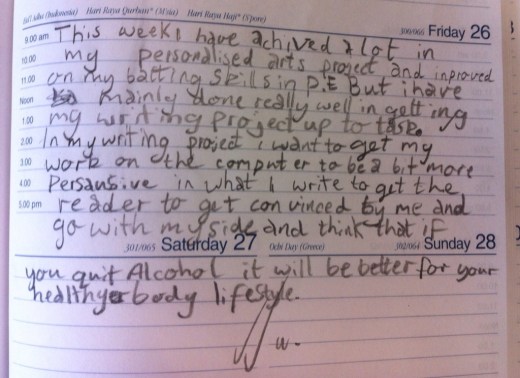 Eid Adha (Indonesia) Hari Raya Qurban* (M'sia) Hari Raya Haji* (S'pore)
300/065 Friday 26
9.00 am This week i have achived a lot in
10.00 my personalised arts project and inproved
11.00 on my batting skills in P.E But i have
Noon mainly done really well in getting
1.00 my writing project up to task.
2.00 In my writing project i want to get my
3.00 work on the computer to be a bit more
4.00 Persausive in what I write to get the
5.00 pm reader to get convinced by me and
go with my side and think that if
301/065 Saturday 27 Ochi Day (Greece) 302/064 Sunday 28
you quit Alcohol it will be better for your
healthyer body lifestyle.